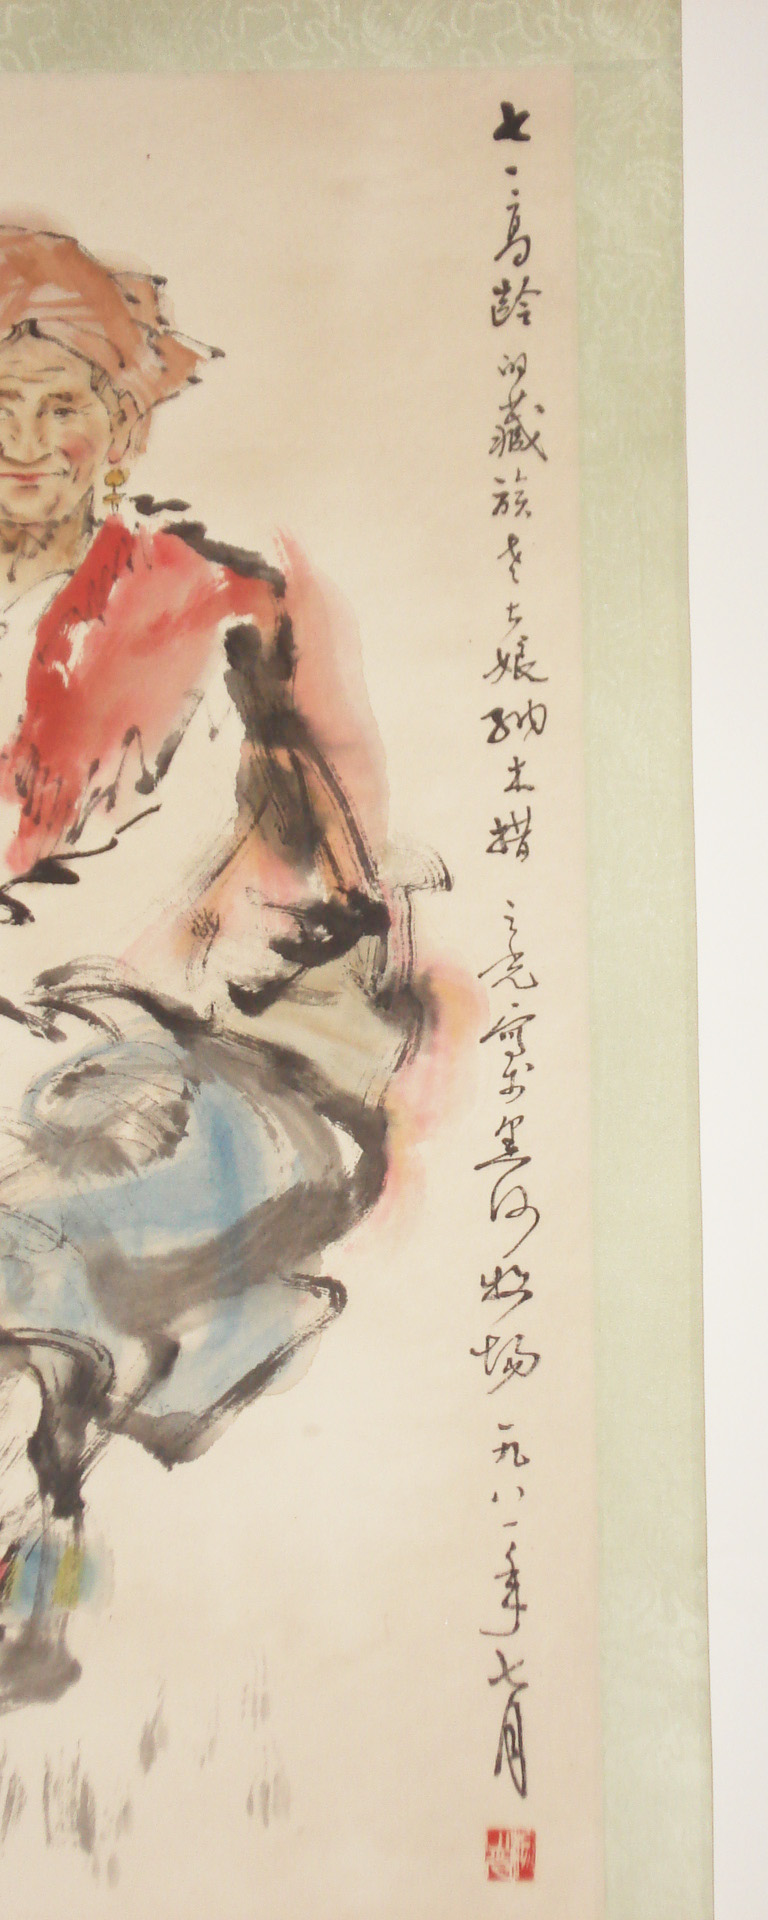 七一高龄的藏族老大娘纳木措之光写于黑河牧场一九八一年七月